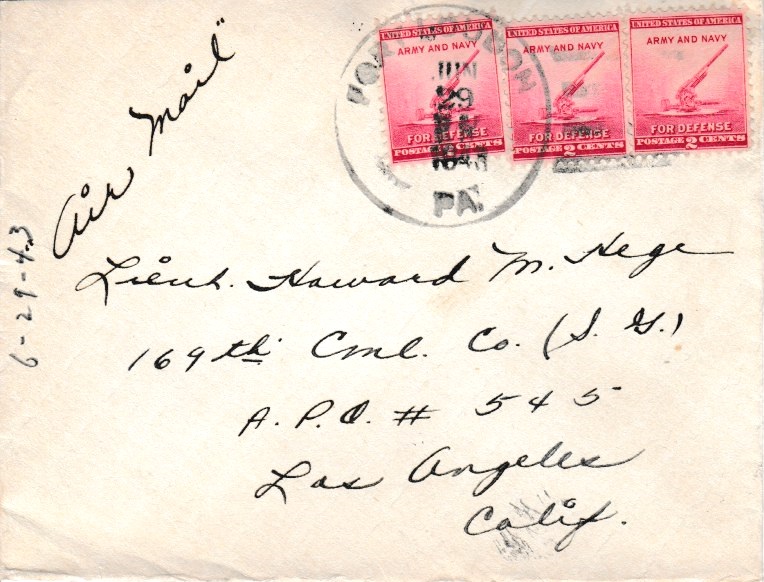 Air Mail"
UNITED STATES OF AMERICA
ARMY AND NAVY
FOR DEFENSE
POSTAGE 2 CENTS
UNITED STATES OF AMERICA
ARMY AND NAVY
FOR DEFENSE
POSTAGE 2 CENTS
UNITED STATES OF AMERICA
ARMY AND NAVY
FOR DEFENSE
POSTAGE 2 CENTS
FORT LOUDON
JUN
29
PA.
6-29-43
Lieut. Howard M. Hege
169th Cml. Co. (S. G.)
A. P. O. # 545
Los Angeles
Calif.